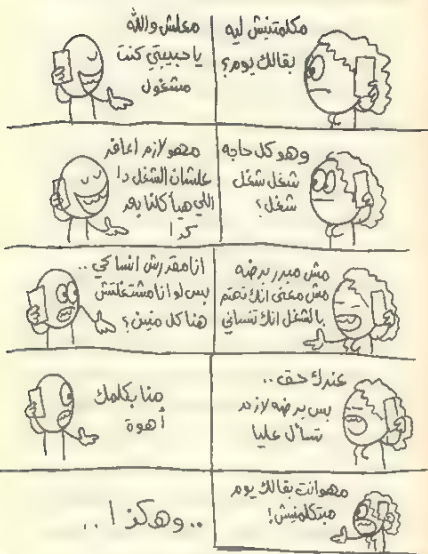 مكلمتنيش ليه
بقالك يوم؟
معلش والله
يا حبيبتي كنت
مشغول
وهو كل حاجه
شغل شغل
شغل؟
مهو لازم اعافر
علشان الشغل دا
اللي هيأكلنا بعد
كدا
مش مبرر برضه
مش معنى انك تهتم
بالشغل انك تنساني
انا مقدرش انساكي ..
بس لو انا مشتغلتش
هناكل منين؟
عندك حق ..
بس برضه لازم
تسأل عليا
منا بكلمك
أهوة
مهو انت بقالك يوم
مبتكلمنيش!
..وهكذا..